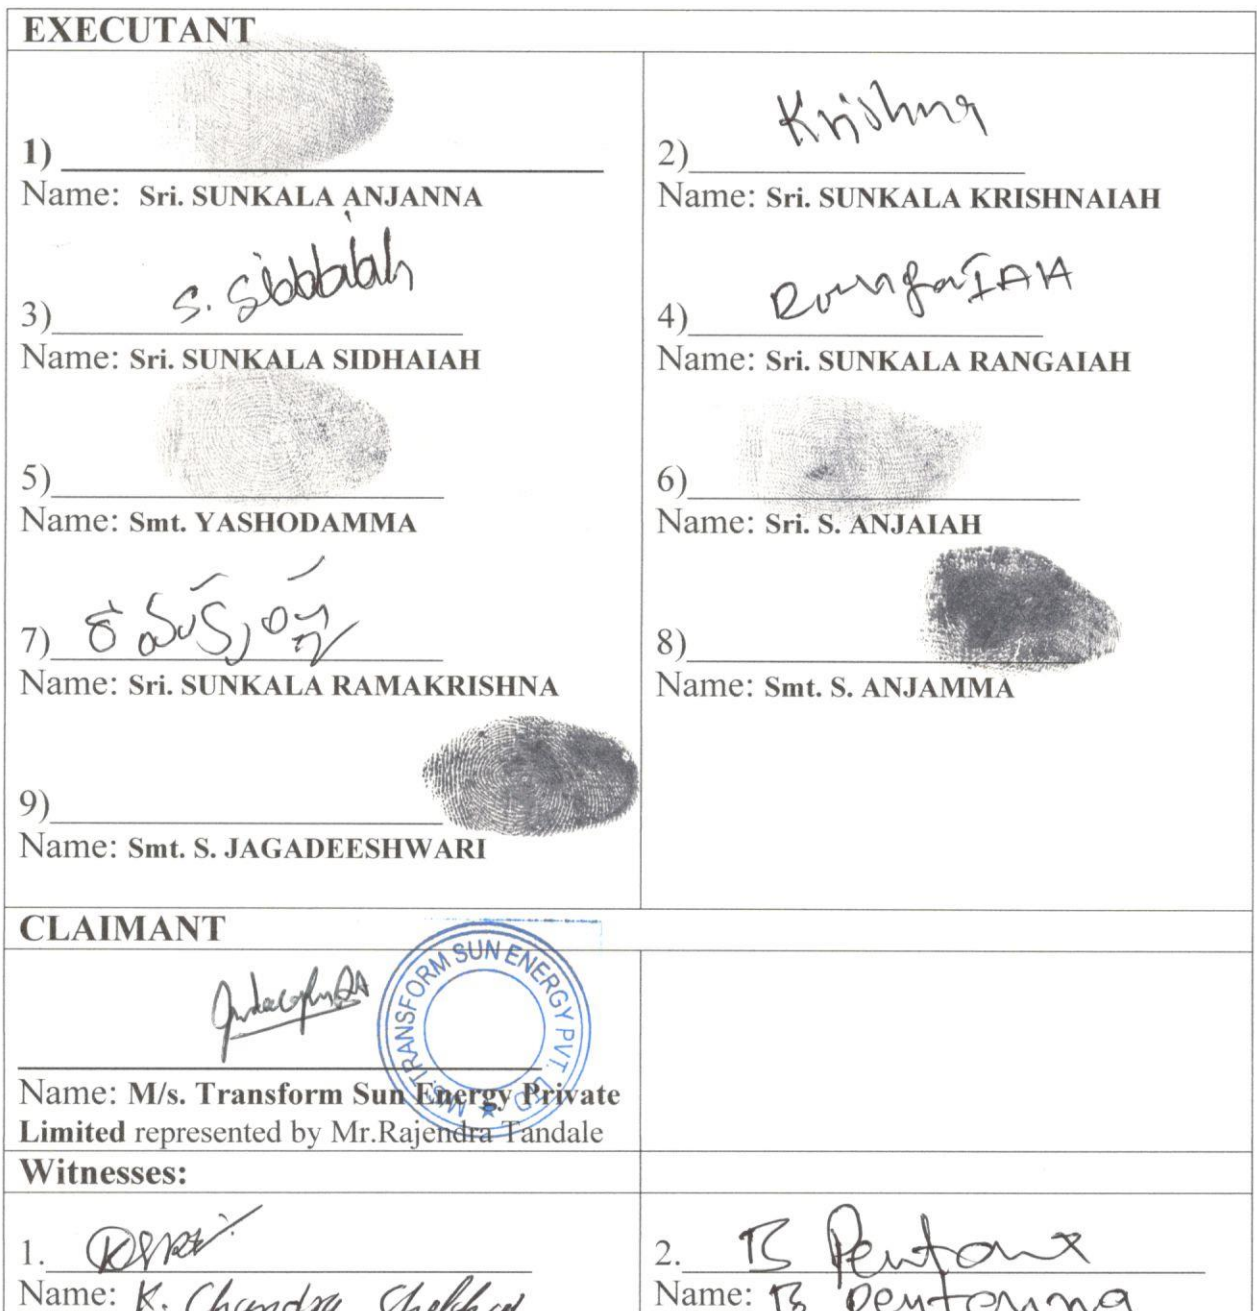 EXECUTANT
1)
Name: Sri. SUNKALA ANJANNA
2) Krishna
Name: Sri. SUNKALA KRISHNAIAH
3) S. Siddaiah
Name: Sri. SUNKALA SIDHAIAH
4) RangaIAH
Name: Sri. SUNKALA RANGAIAH
5)
Name: Smt. YASHODAMMA
6)
Name: Sri. S. ANJAIAH
7)
Name: Sri. SUNKALA RAMAKRISHNA
8)
Name: Smt. S. ANJAMMA
9)
Name: Smt. S. JAGADEESHWARI
CLAIMANT
M/S. TRANSFORM SUN ENERGY PVT. LTD.
Name: M/s. Transform Sun Energy Private
Limited represented by Mr.Rajendra Tandale
Witnesses:
1.
Name: K. Chandra Shekhar
2. B
Name: B